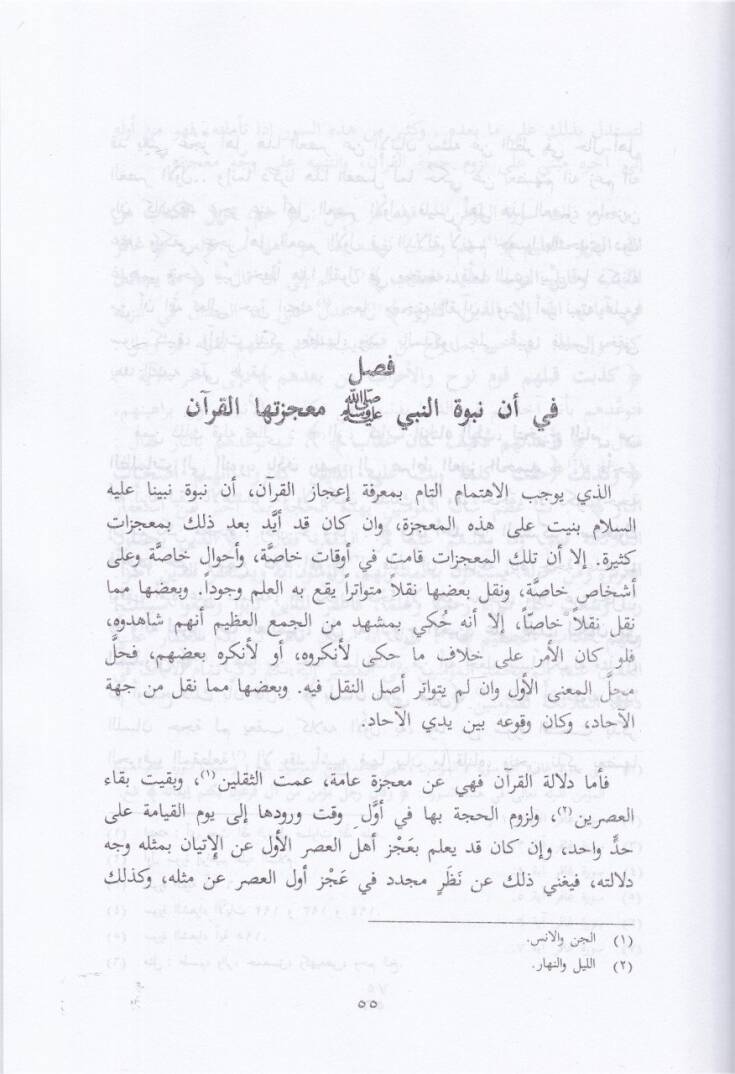 فصل
في أن نبوة النبي ﷺ معجزتها القرآن
الذي يوجب الاهتمام التام بمعرفة إعجاز القرآن، أن نبوة نبينا عليه
السلام بنيت على هذه المعجزة، وان كان قد أيَّد بعد ذلك بمعجزات
كثيرة. إلا أن تلك المعجزات قامت في أوقات خاصَّة، وأحوال خاصَّة وعلى
أشخاص خاصَّة، ونقل بعضها نقلاً متواتراً يقع به العلم وجوداً. وبعضها مما
نقل نقلاً خاصّاً، إلا أنه حُكي بمشهد من الجمع العظيم أنهم شاهدوه،
فلو كان الأمر على خلاف ما حكى لأنكروه، أو لأنكره بعضهم، فحلَّ
محلَّ المعنى الأول وان لم يتواتر أصل النقل فيه. وبعضها مما نقل من جهة
الآحاد، وكان وقوعه بين يدي الآحاد.
فأما دلالة القرآن فهي عن معجزة عامة، عمت الثقلين (١)، وبقيت بقاء
العصرين (٢)، ولزوم الحجة بها في أوَّلِ وقت ورودها إلى يوم القيامة على
حدٍّ واحد، وإن كان قد يعلم بعَجْز أهل العصر الأول عن الإتيان بمثله وجه
دلالته، فيغني ذلك عن نَظَرٍ مجدد في عَجْز أول العصر عن مثله، وكذلك
(١) الجن والانس.
(٢) الليل والنهار.
٥٥